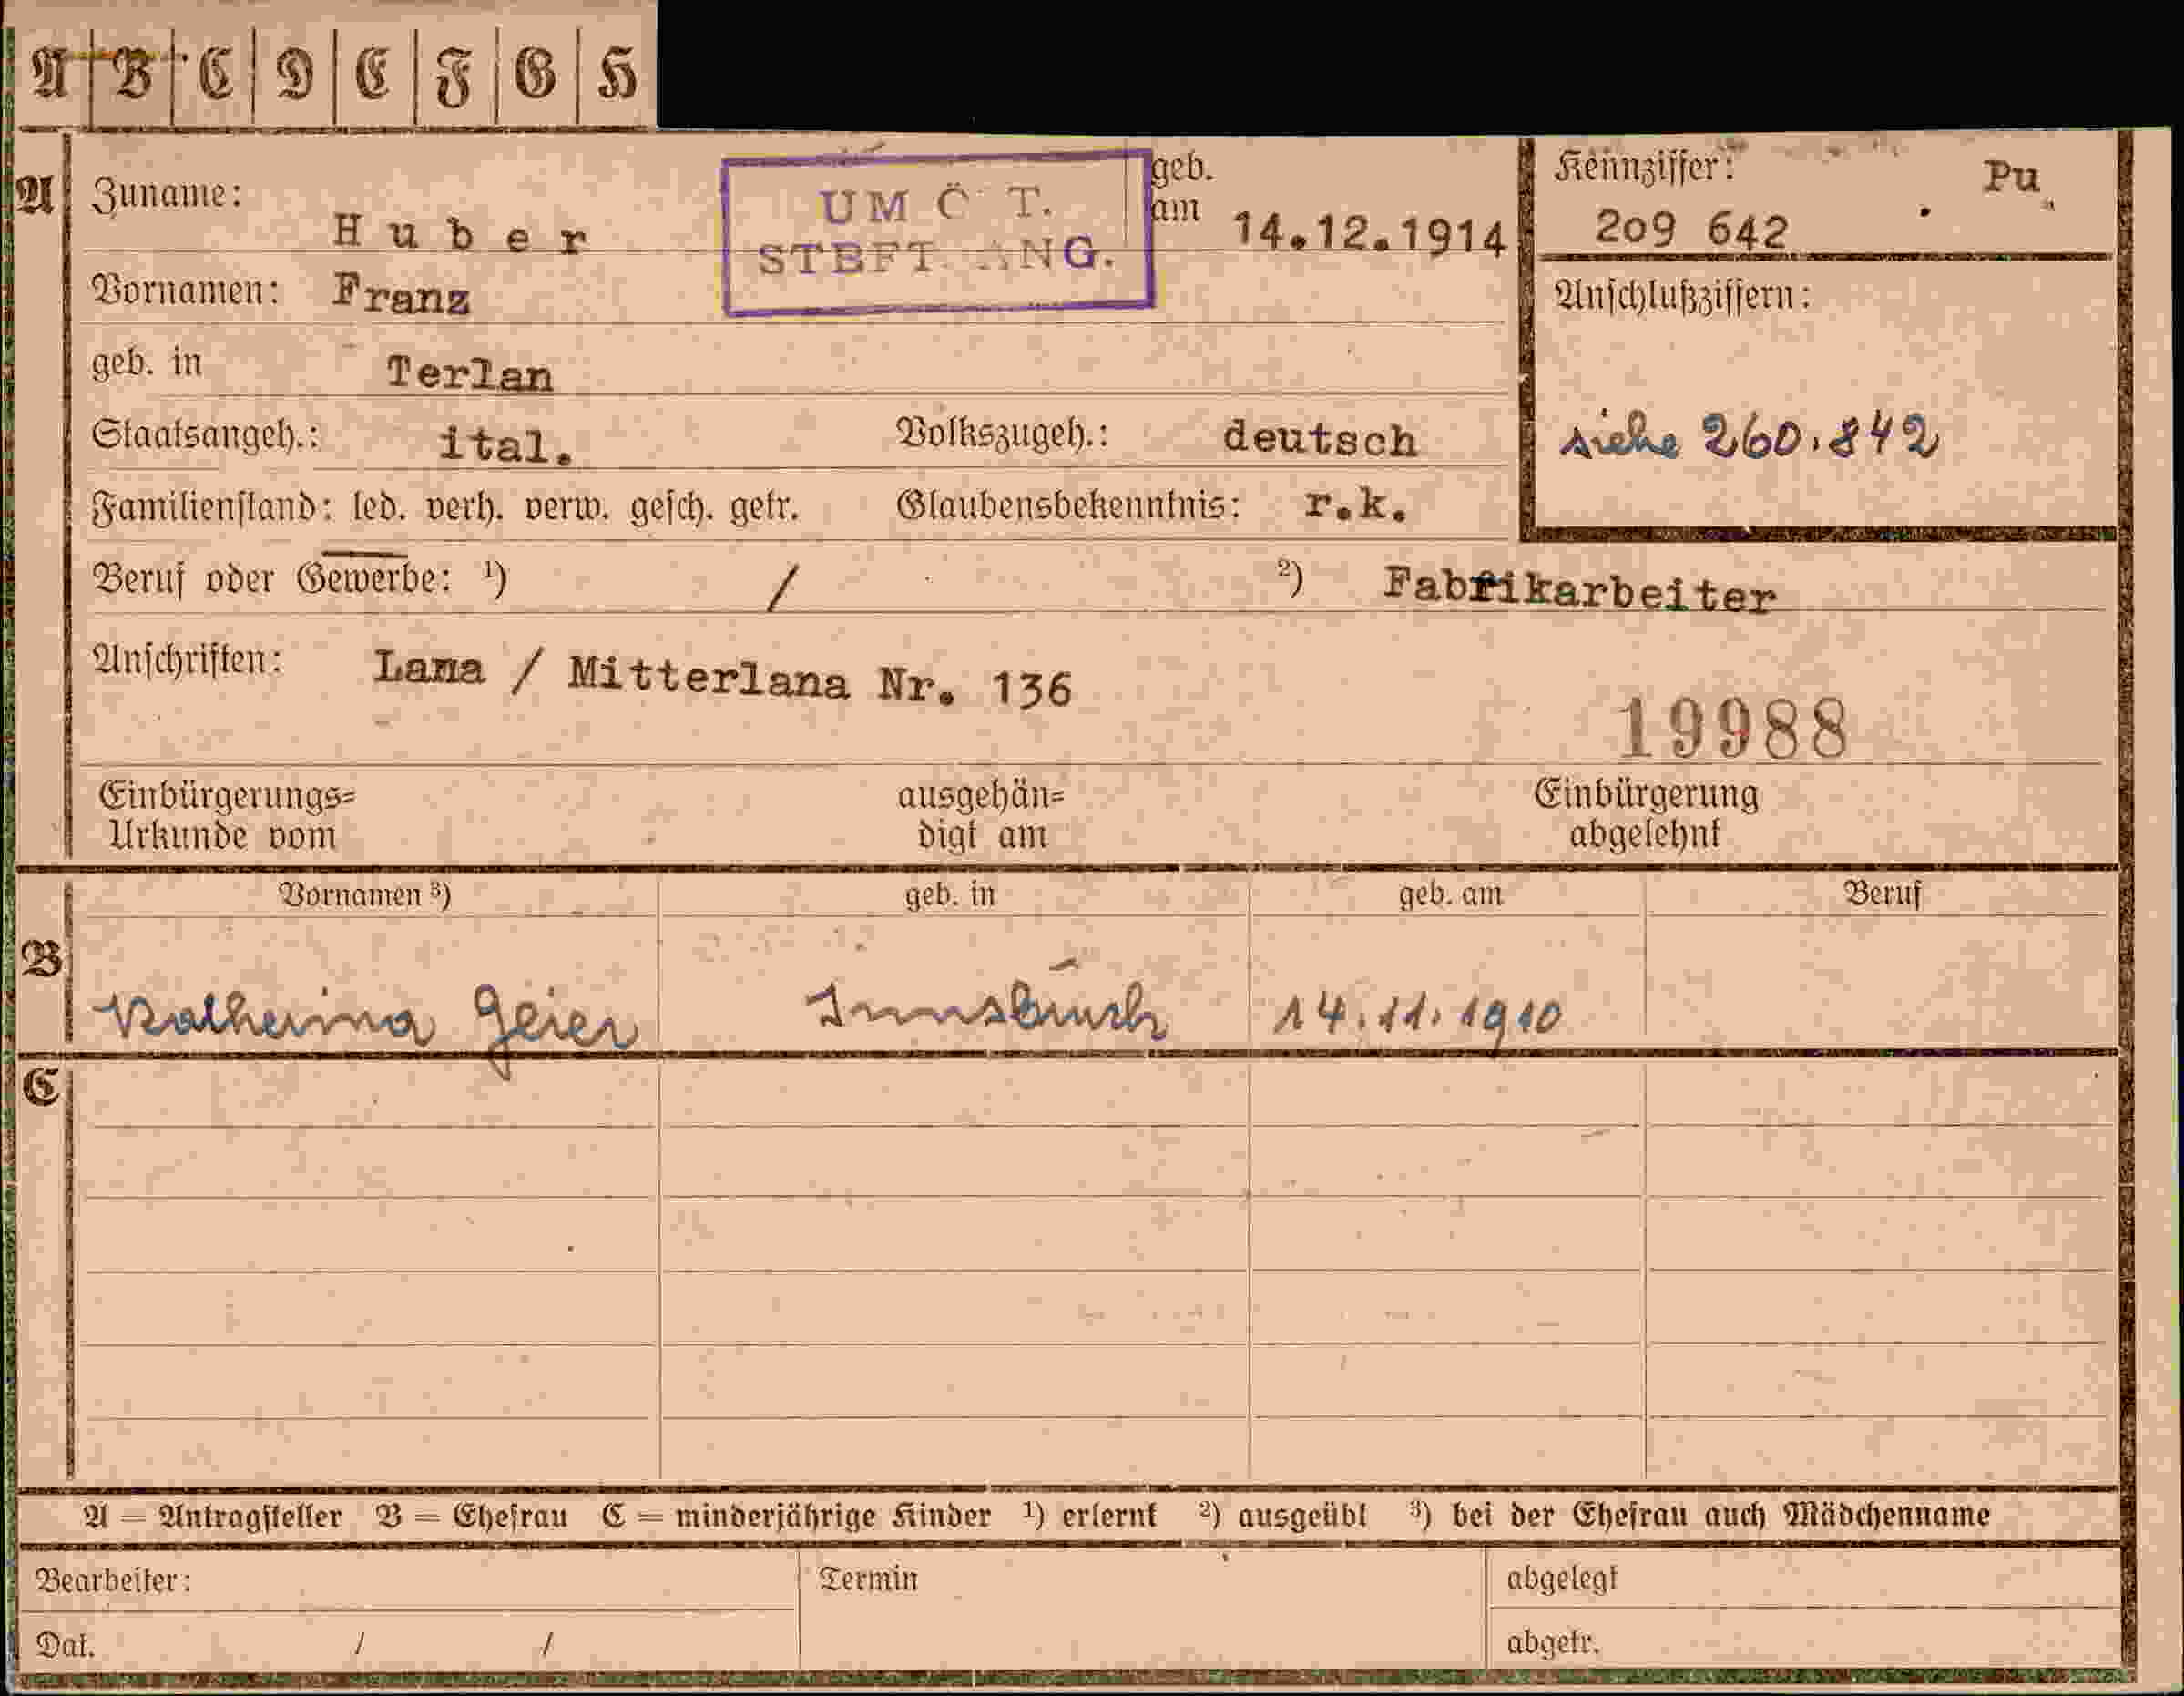 A B C D E F G H
A Zuname: H u b e r
UM Ö T.
STBFT. ANG.
geb. am 14.12.1914
Kennziffer: Pu
209 642
Vornamen: Franz
Anschlußziffern:
geb. in Terlan
siehe 260.842
Staatsangeh.: ital. Volkszugeh.: deutsch
Familienstand: led. verh. verw. gesch. getr. Glaubensbekenntnis: r.k.
Beruf oder Gewerbe: 1) / 2) Fabrikarbeiter
Anschriften: Lana / Mitterlana Nr. 136
19988
Einbürgerungs= ausgehän= Einbürgerung
Urkunde vom digt am abgelehnt
Vornamen 3) geb. in geb. am Beruf
B Katherina Geier Innsbruck 14.11.1910
C
A = Antragsteller B = Ehefrau C = minderjährige Kinder 1) erlernt 2) ausgeübt 3) bei der Ehefrau auch Mädchenname
Bearbeiter: Termin abgelegt
Dat. / / abgetr.